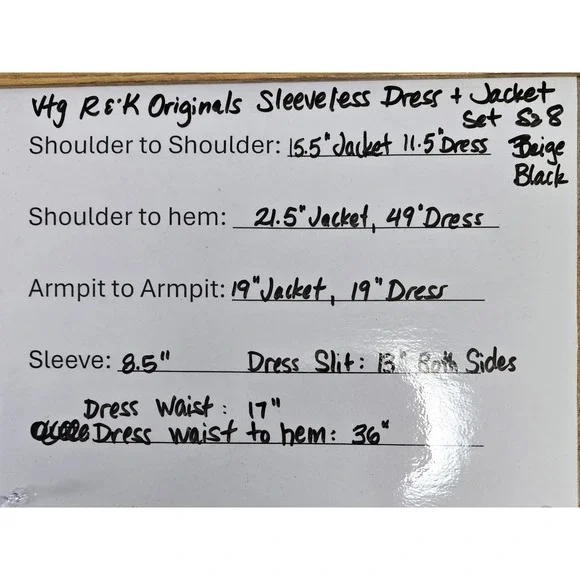 Vtg R & K Originals Sleeveless Dress + Jacket
Set Sz 8
Shoulder to Shoulder: 15.5" Jacket 11.5" Dress Beige
Black
Shoulder to hem: 21.5" Jacket, 49" Dress
Armpit to Armpit: 19" Jacket, 19" Dress
Sleeve: 8.5" Dress Slit: 13" Both Sides
Dress Waist: 17"
Dress waist to hem: 36"